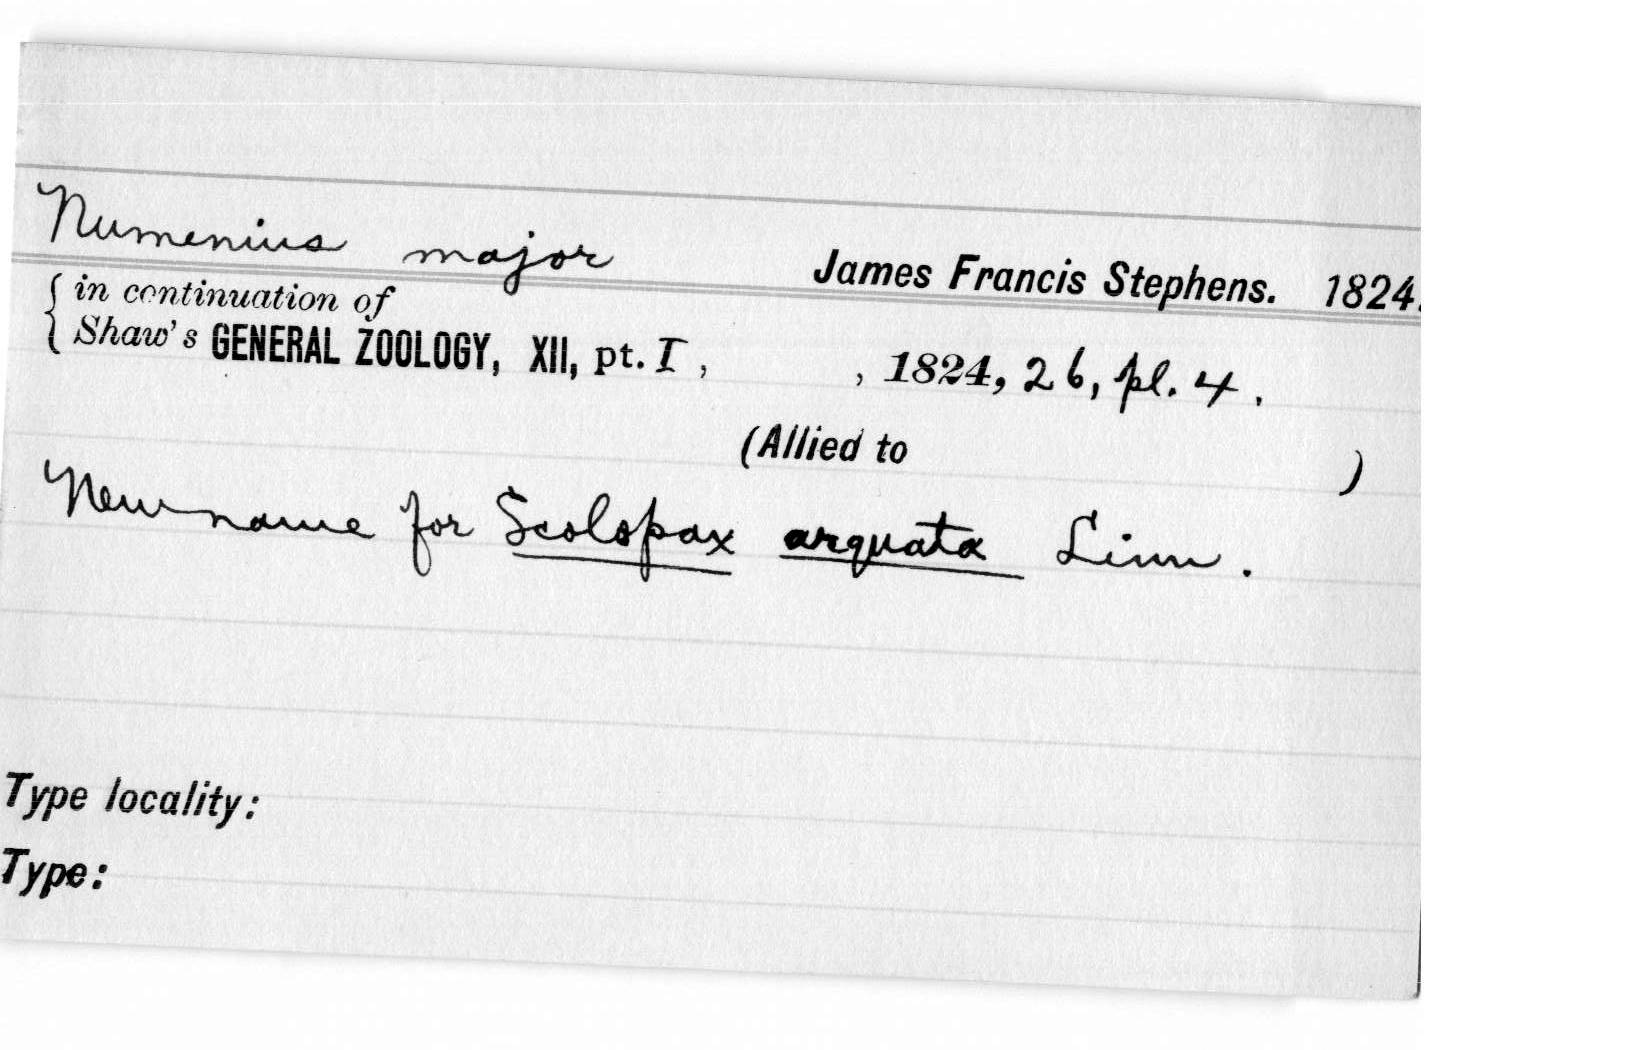 Numenius major James Francis Stephens. 1824.
{ in continuation of
Shaw's GENERAL ZOOLOGY, XII, pt. I, , 1824, 26, pl. 4.
(Allied to )
New name for Scolopax arquata Linn.
Type locality:
Type: